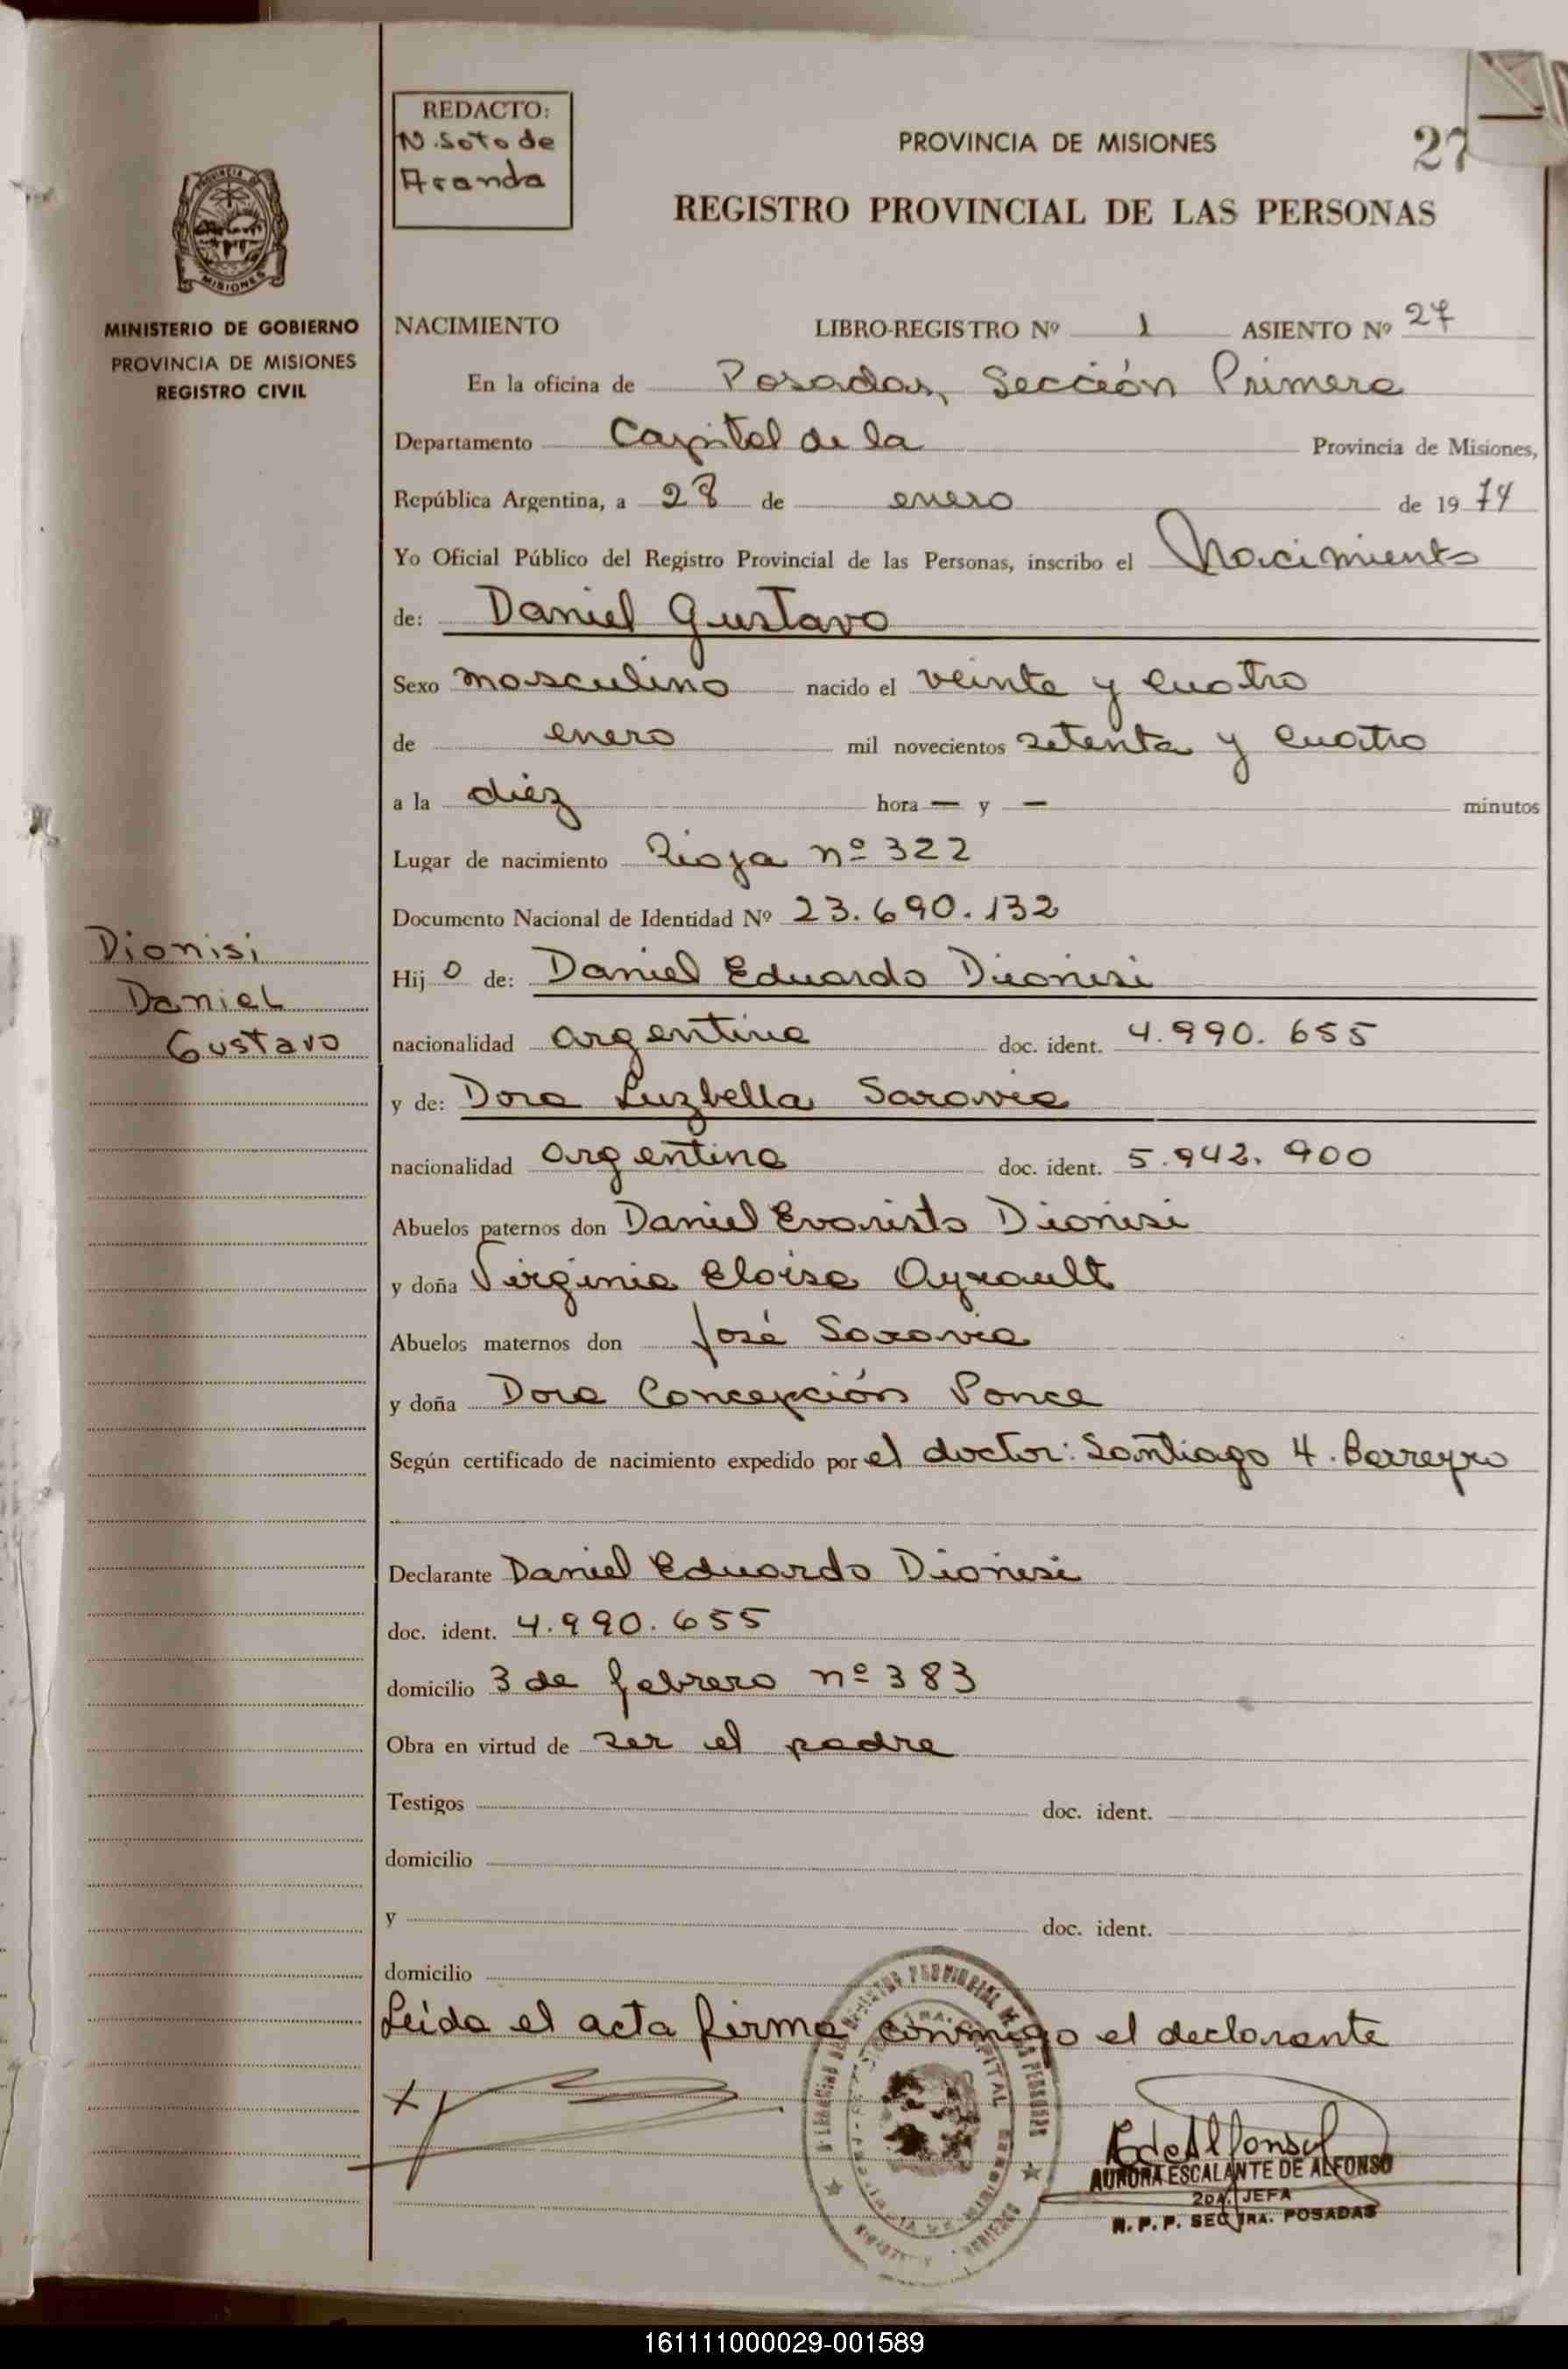 REDACTO:
N. Soto de
Aranda
PROVINCIA DE MISIONES
27
REGISTRO PROVINCIAL DE LAS PERSONAS
MISIONES
MINISTERIO DE GOBIERNO
PROVINCIA DE MISIONES
REGISTRO CIVIL
NACIMIENTO LIBRO-REGISTRO Nº 1 ASIENTO Nº 27
En la oficina de Posadas, Sección Primera
Departamento Capital de la Provincia de Misiones,
República Argentina, a 28 de enero de 1974
Yo Oficial Público del Registro Provincial de las Personas, inscribo el Nacimiento
de: Daniel Gustavo
Sexo masculino nacido el veinte y cuatro
de enero mil novecientos setenta y cuatro
a la diez hora — y — minutos
Lugar de nacimiento Rioja nº 322
Documento Nacional de Identidad Nº 23.690.132
Dionisi
Daniel
Gustavo
Hijo de: Daniel Eduardo Dionisi
nacionalidad argentina doc. ident. 4.990.655
y de: Dora Luzbella Saravia
nacionalidad argentina doc. ident. 5.942.900
Abuelos paternos don Daniel Evaristo Dionisi
y doña Virginia Eloisa Ayrault
Abuelos maternos don José Saravia
y doña Dora Concepción Ponce
Según certificado de nacimiento expedido por el doctor: Santiago H. Barreyro
Declarante Daniel Eduardo Dionisi
doc. ident. 4.990.655
domicilio 3 de febrero nº 383
Obra en virtud de ser el padre
Testigos doc. ident.
domicilio
y doc. ident.
domicilio
Leída el acta firma conmigo el declarante
AURORA ESCALANTE DE ALFONSO
2DA. JEFA
R. P. P. SEC. 1RA. POSADAS
161111000029-001589